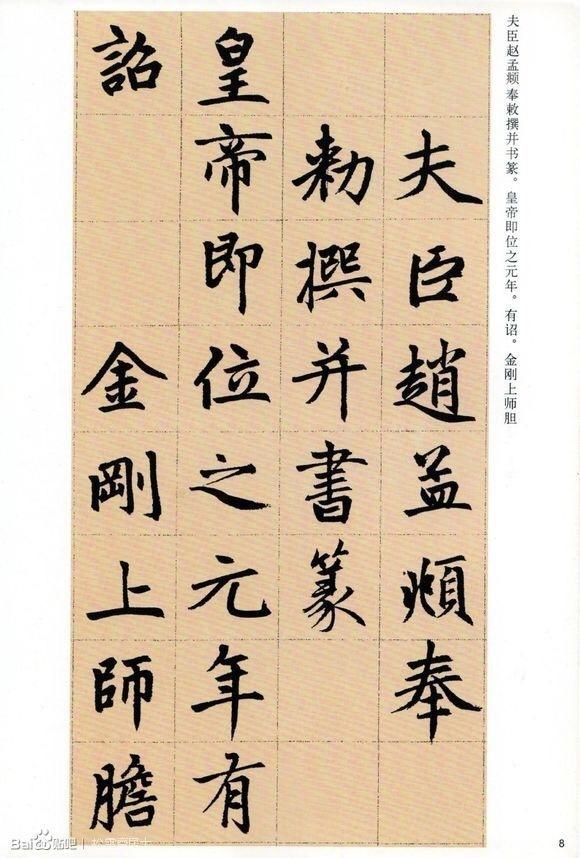 夫臣赵孟頫奉敕撰并书篆。皇帝即位之元年。有诏。金刚上师胆
夫臣趙孟頫奉
勅撰并書篆
皇帝即位之元年有
詔金剛上師膽
8
Bai 贴吧